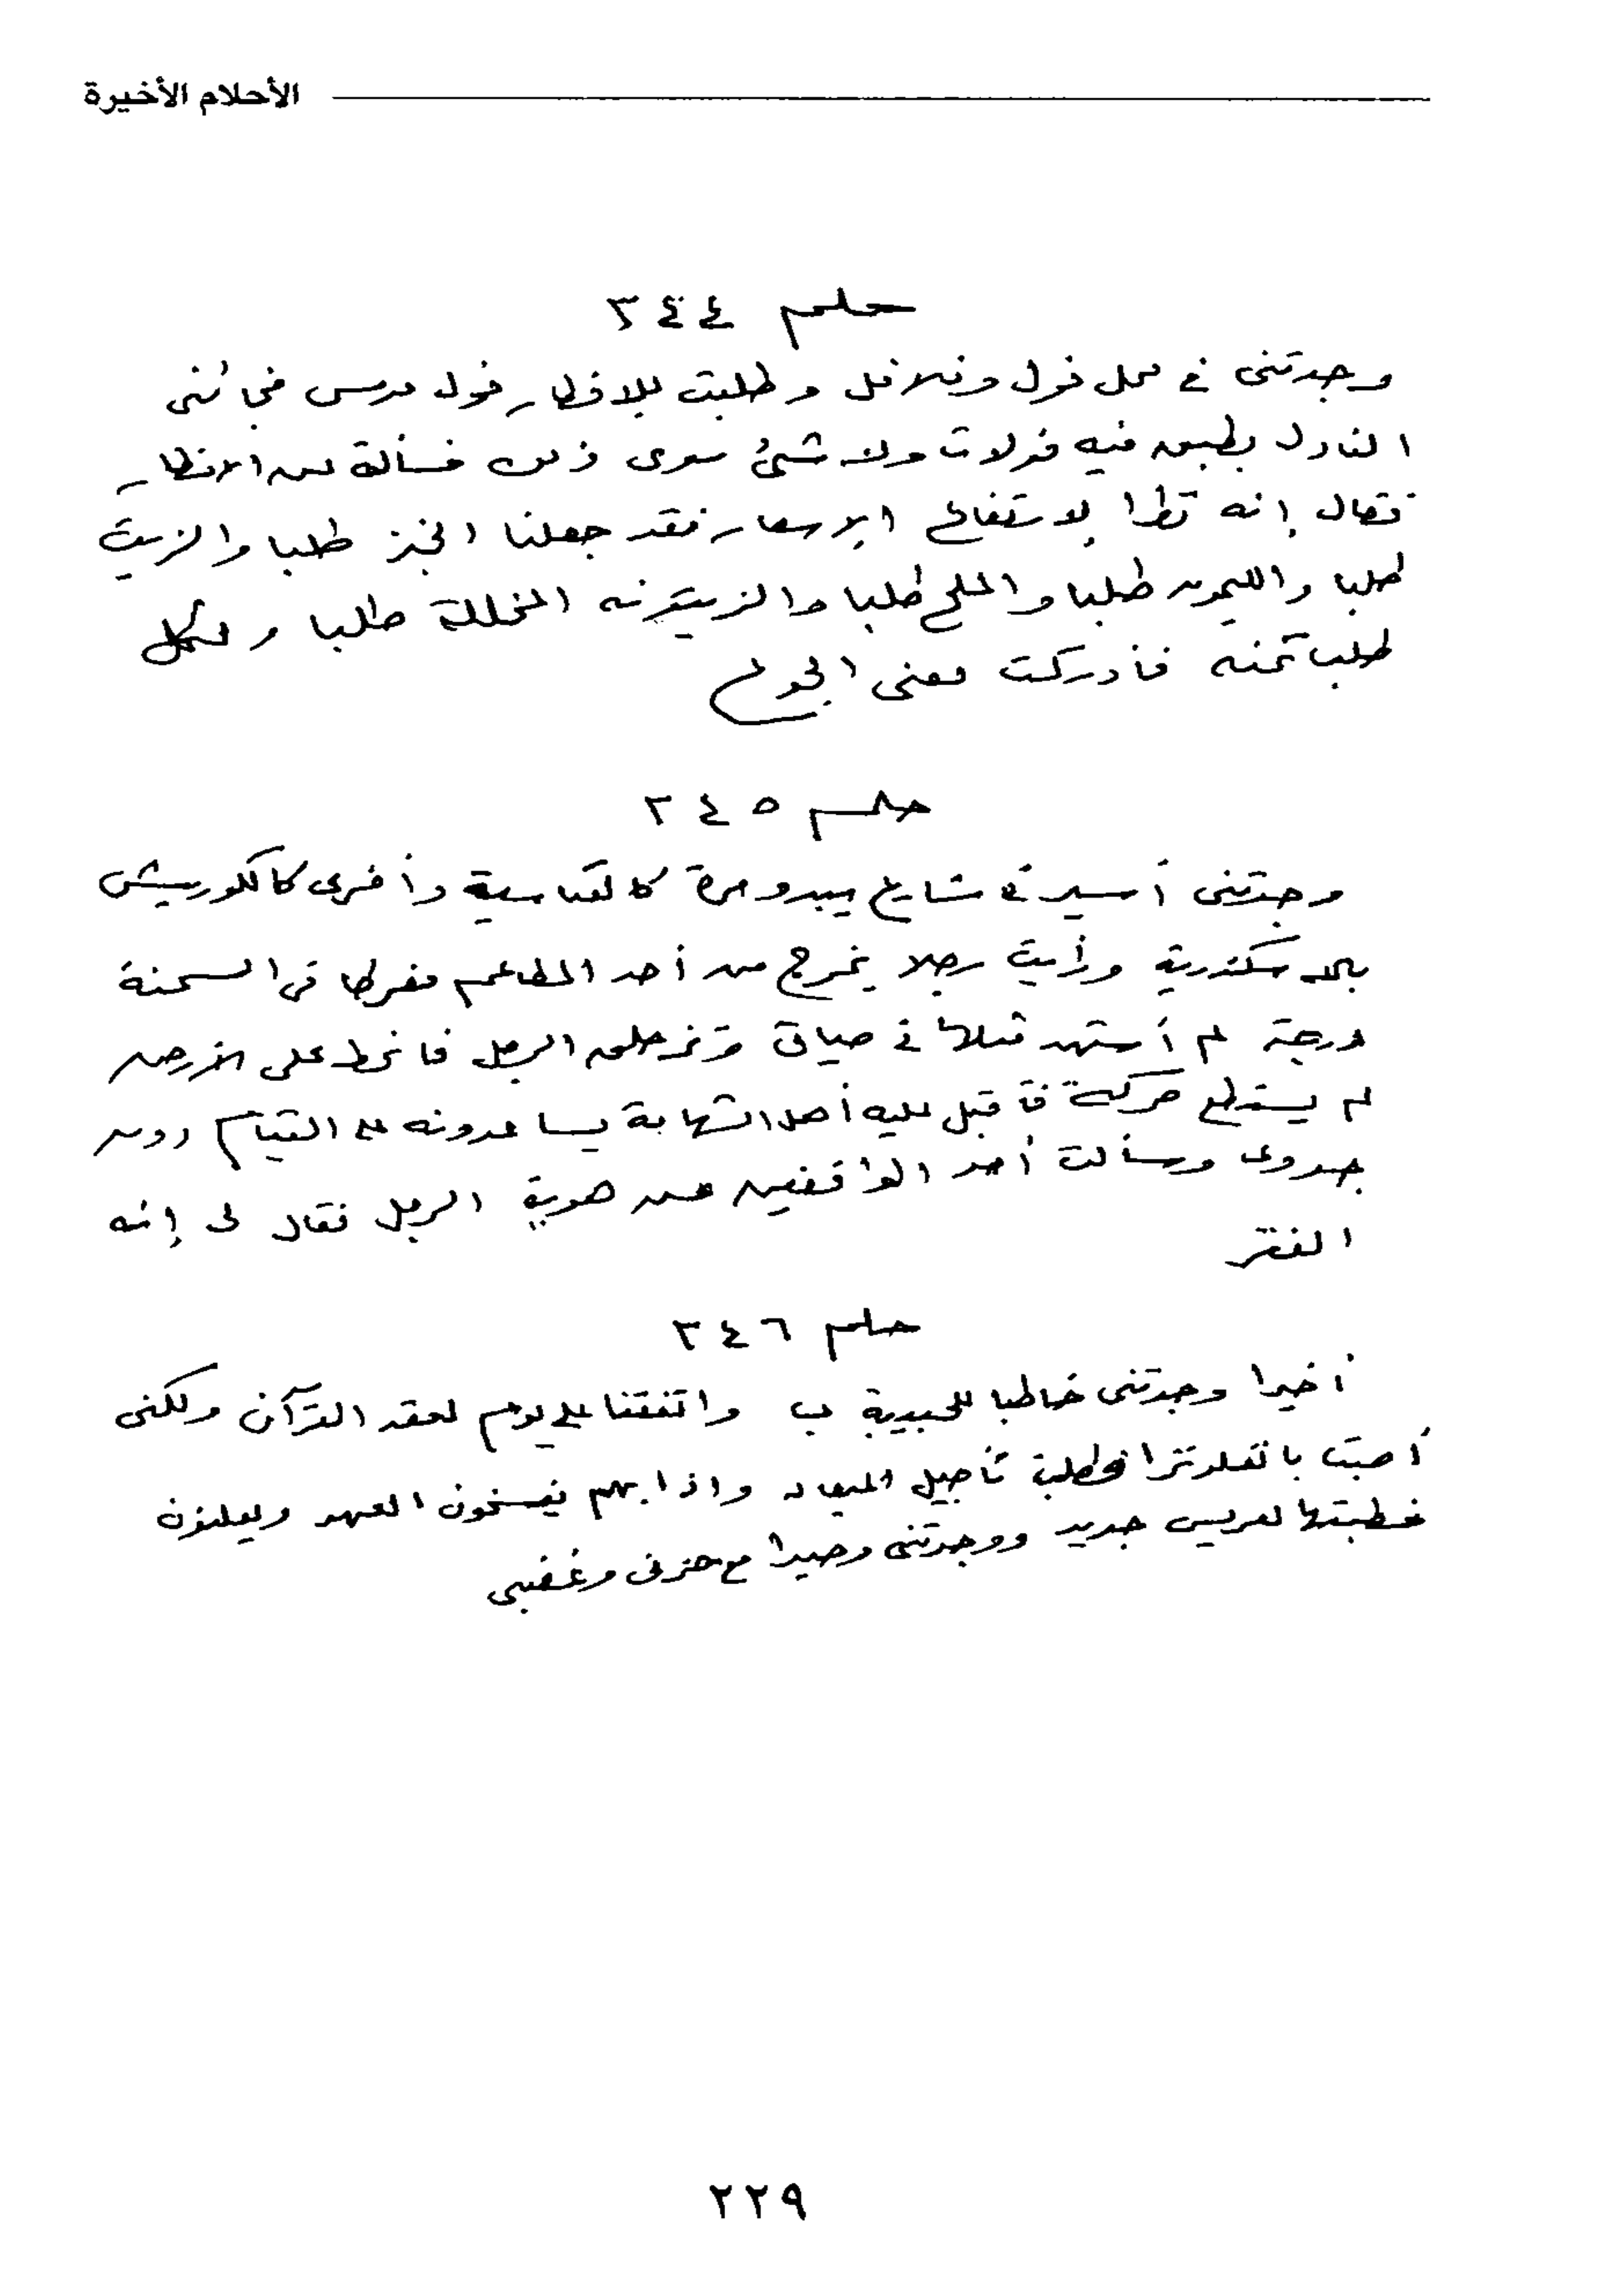 الأحلام الأخيرة
حلم ٣٤٤
وجدتنى في محل فول وفلافل وطلبت للافطار فول مدمس فجائنى
النادل بطبق فيه فولات ولا شئ سوى ذلك فسألته عن الافطار
فقال إنه نظرا لارتفاع الاسعار فقد جعلنا الخبز طلبا والزيت
طلبا والليمون طلبا والملح طلبا والزيتونه المخللة طلبا ولكل
طلب ثمنه فأدركت معنى الجوع
حلم ٣٤٥
وجدتنى أسير في شارع يبدو مرة كالعباسية وأخرى كالكورنيش
بالاسكندرية ورأيت رجلا يخرج من أحد المطاعم مفرطا فى السمنة
درجة لم أشهد مثلها في حياتى وتزحلق الرجل فانحط على الأرض
لم يستطع حركة فأقبل عليه أهل الشهامة يساعدونه على القيام دون
جدوى وسألت أحد الواقفين عن هوية الرجل فقال لى إنه
الفقر
حلم ٣٤٦
أخيرا وجدتنى خاطبا للحبيبة ب واتفقنا على يوم لعقد القرآن ولكنى
أصبت بانفلونزا فطلبت تأجيل الميعاد واذا بهم يفسخون العهد ويعلنون
خطبتها لعريس جديد ووجدتنى وحيدا مع حزنى وغضبى
٢٢٩